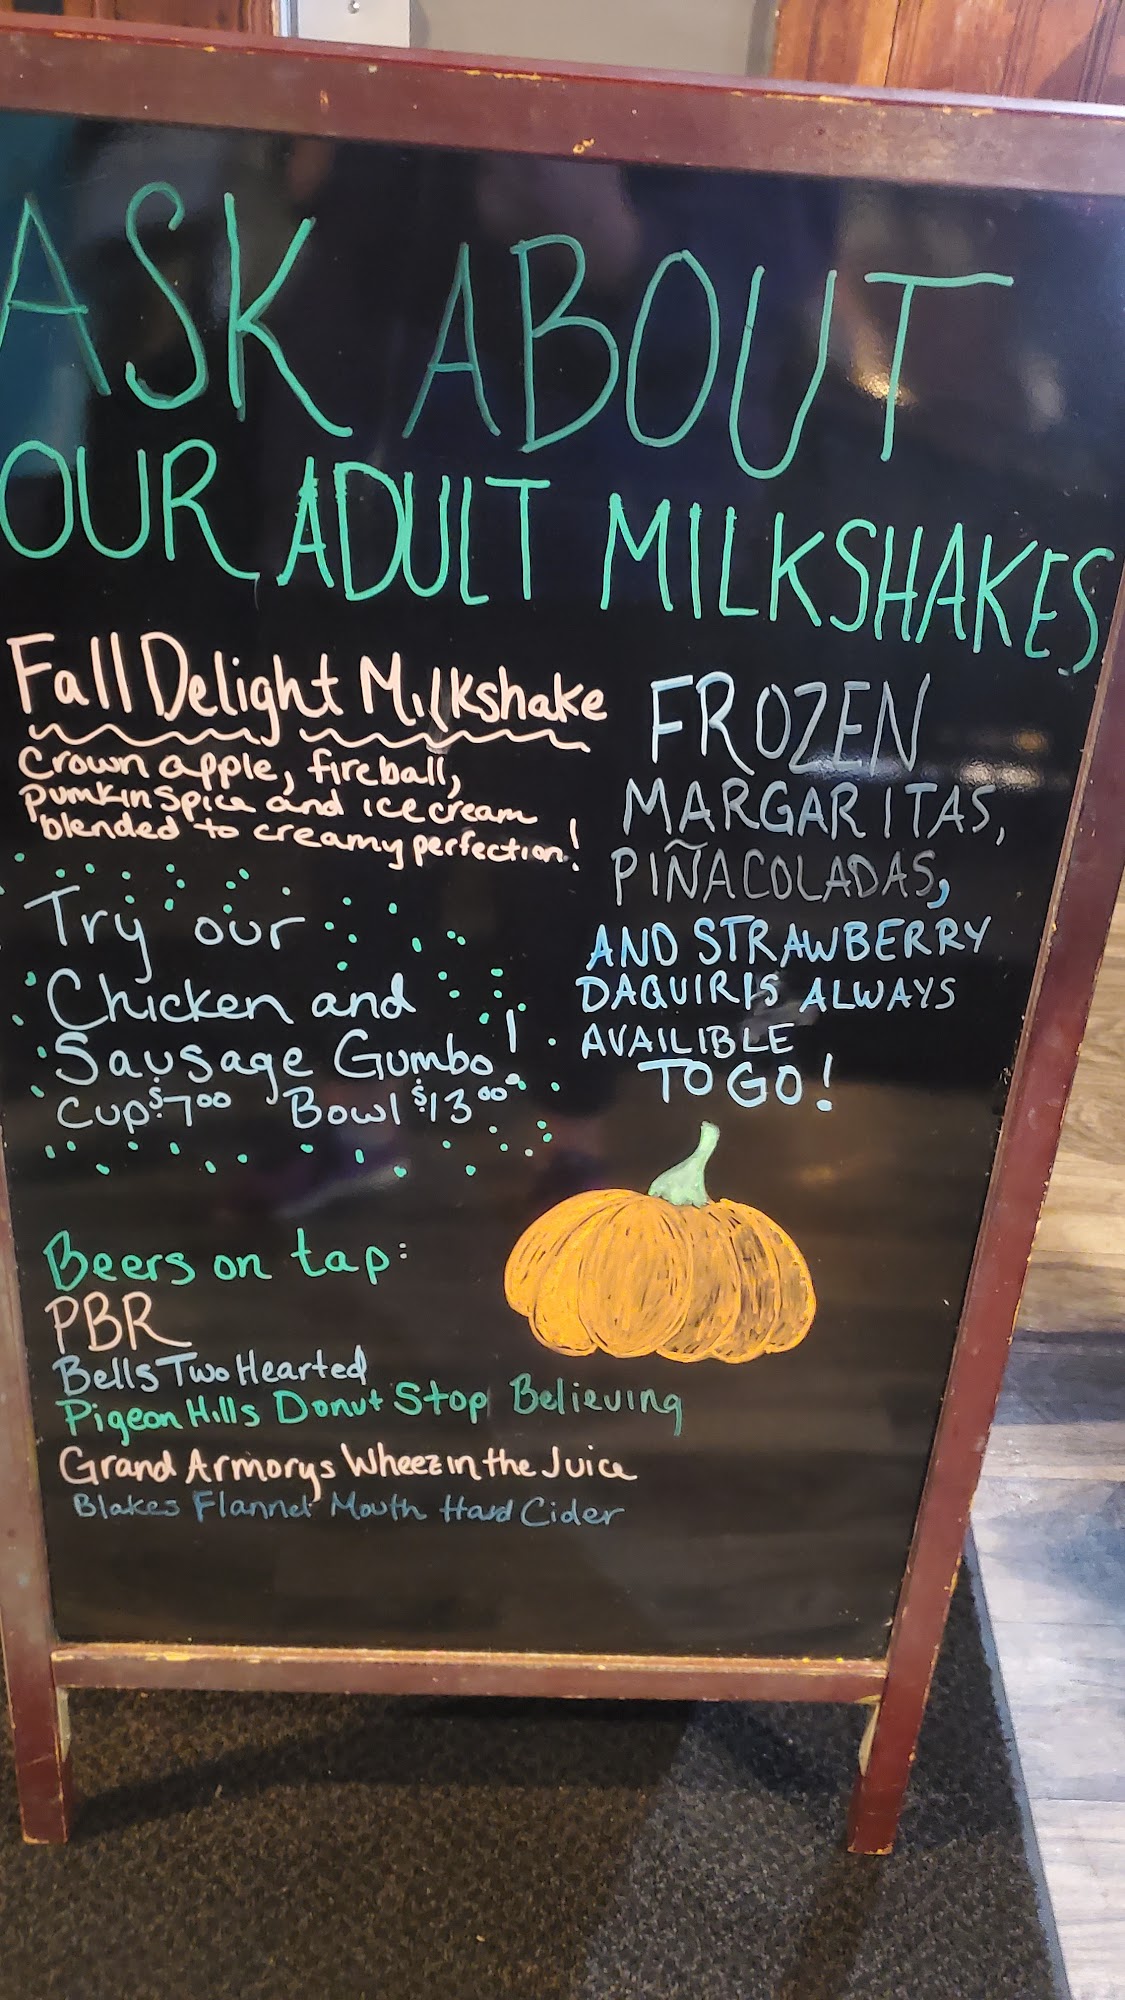 ASK ABOUT
OUR ADULT MILKSHAKES
Fall Delight Milkshake
Crown apple, fireball,
pumkin spice and ice cream
blended to creamy perfection!
Try our
Chicken and
Sausage Gumbo!
Cup $7.00 Bowl $13.00
FROZEN
MARGARITAS,
PIÑACOLADAS,
AND STRAWBERRY
DAQUIRIS ALWAYS
AVAILIBLE
TO GO!
Beers on tap:
PBR
Bells Two Hearted
Pigeon Hills Donut Stop Believing
Grand Armorys Wheez in the Juice
Blakes Flannel Mouth Hard Cider